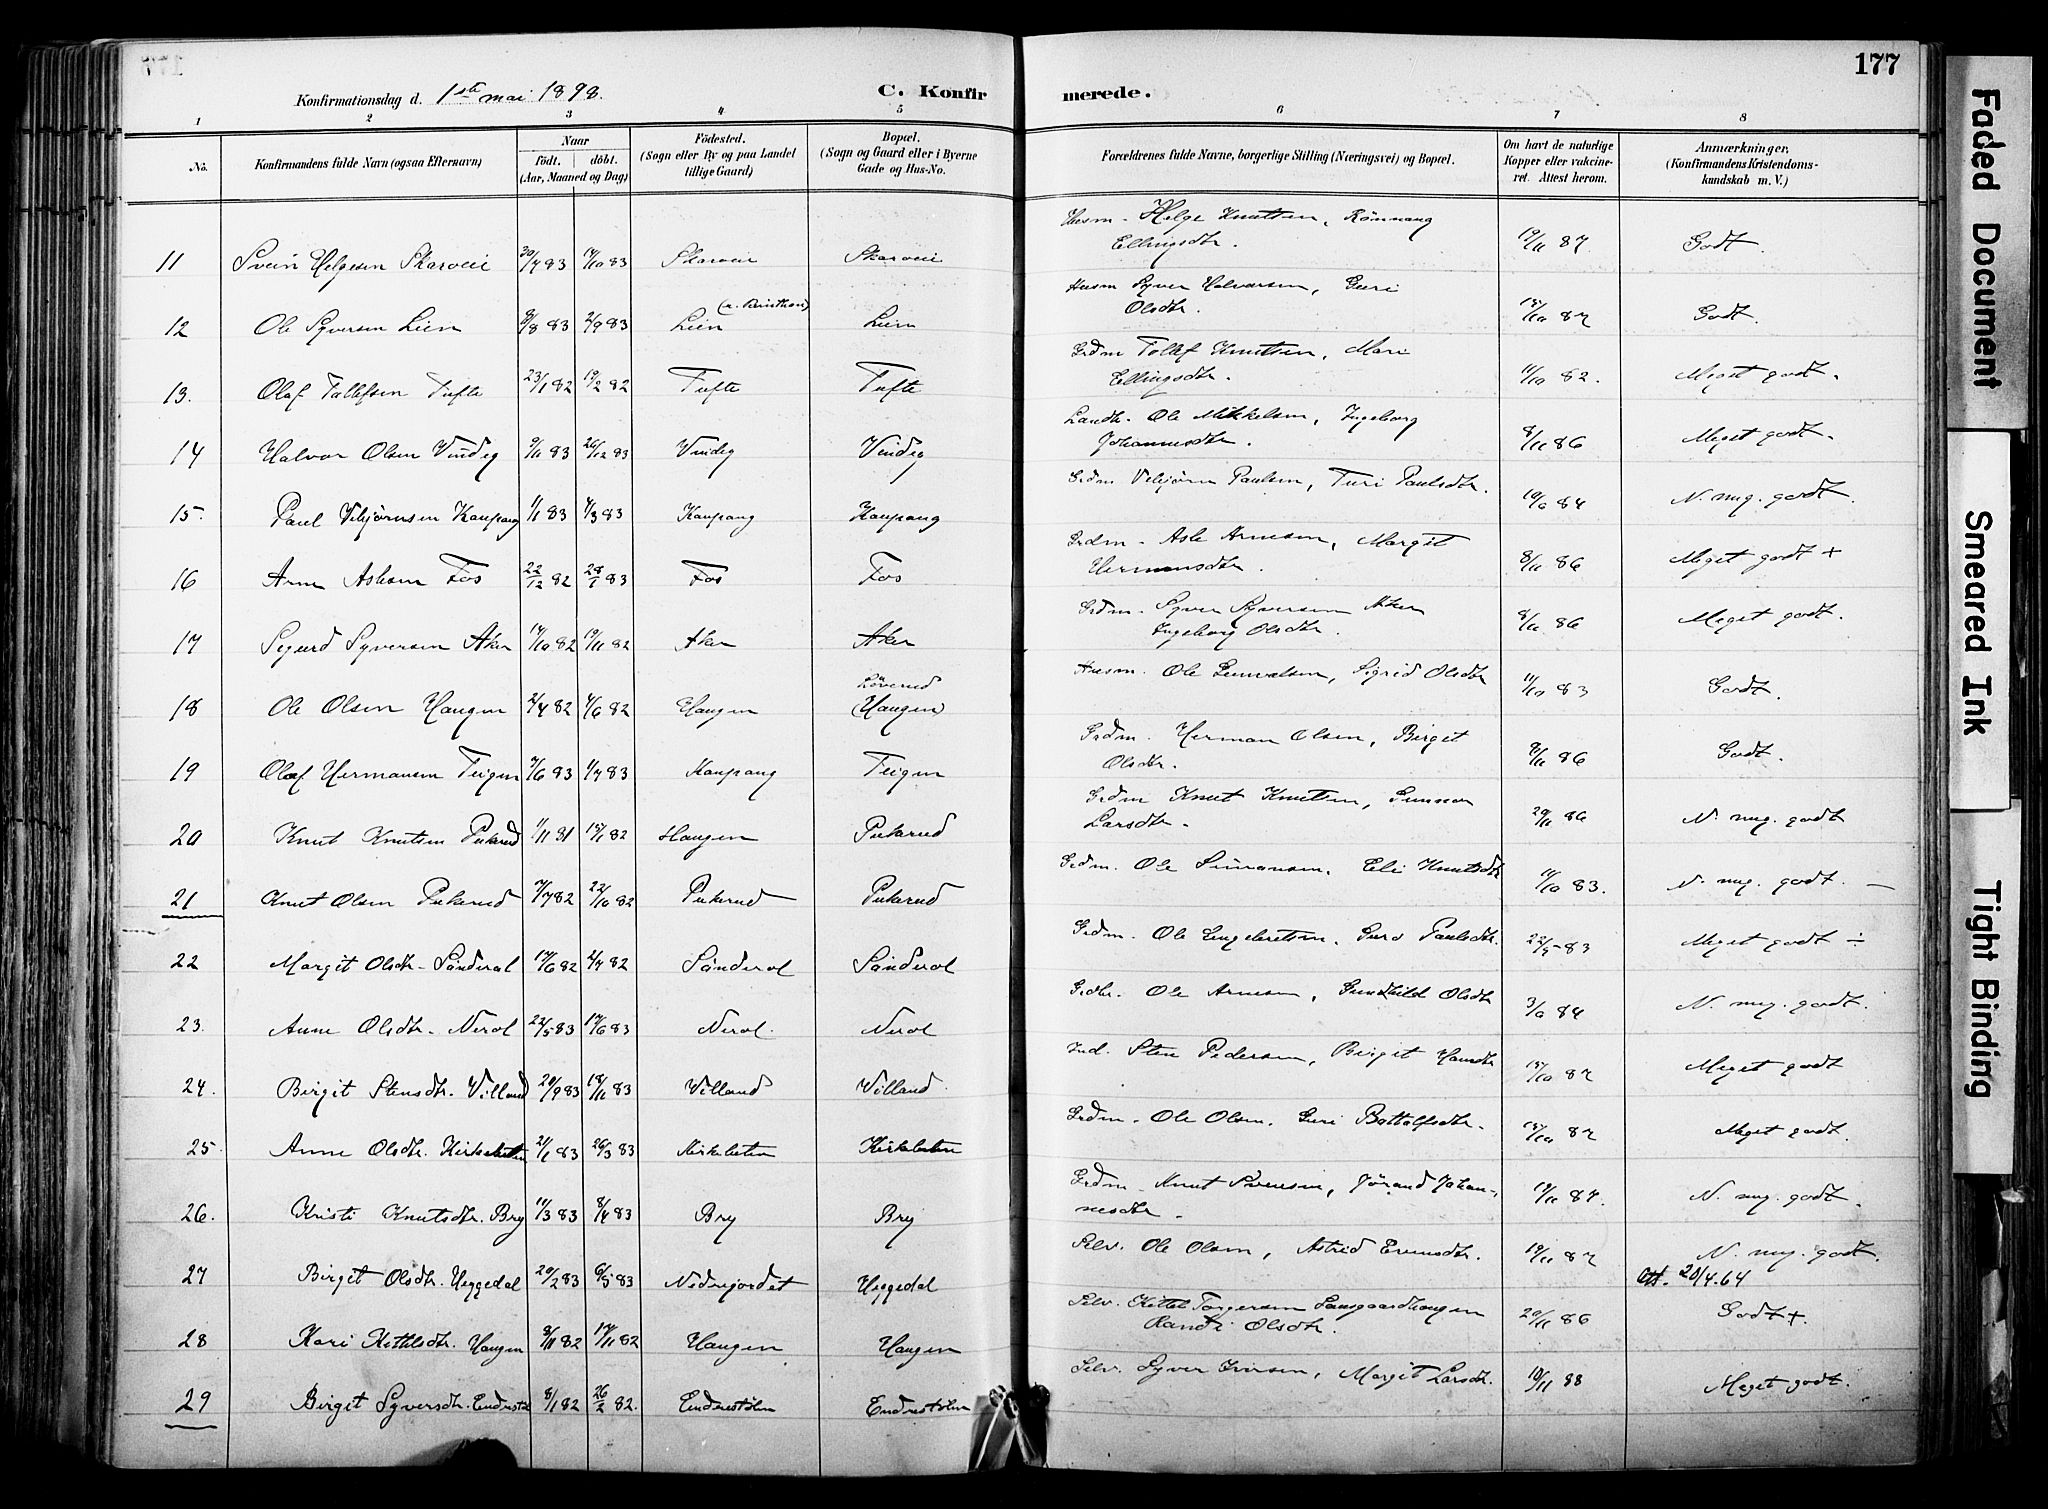 177
Konfirmationsdag d. 1ste mai 1898.
C. Konfirmerede.
1 2 3 4 5 6 7 8
No.
Konfirmandens fulde Navn (ogsaa Efternavn)
Naar
födt. döbt.
(Aar, Maaned og Dag)
Födested.
(Sogn eller By og paa Landet
tillige Gaard)
Bopæl.
(Sogn og Gaard eller i Byerne
Gade og Hus-No.
Forældrenes fulde Navne, borgerlige Stilling (Næringsvei) og Bopæl.
Om havt de naturlige
Kopper eller vakcine-
ret. Attest herom.
Anmærkninger,
(Konfirmandens Kristendoms-
kundskab m. V.)
11 Svein Helgesen Skarveii 30/7 83 83 Skarveii Skarveii Husm. Helge Knutsen, Rönnaug
Ellingsdtr. 19/11 87 Godt.
12 Ole Syversen Lien 83 2/9 83 Lien Lien Husm Syver Halvorsen, Guri
Olsdtr. 18/10 87 Godt.
13. Olaf Tollefsen Tufte 23/1 82 19/2 82 Tufte Tufte Grdm Tollef Knutsen, Mari
Ellingsdtr. 11/10 82. Meget godt.
14 Halvor Olsen Vindeg 9/11 83 26/12 83 Vindeg Vindeg Landh. Ole Mikkelsen, Ingeborg
Johannesdtr. 8/11 86 Meget godt.
15. Paul Vebjörnsen Kaupang 1/1 83 4/3 83 Kaupang Kaupang Grdm Vebjörn Paulsen, Turi Paulsdtr. 84 N. mg. godt.
16 Arne Aslesen Fos 22/12 82 28/1 83 Fos Fos Grdm. Asle Arnesen, Margit
Hermansdtr. 8/11 86 Meget godt +
17 Sigurd Syversen Aker 17/10 82 19/11 82 Aker Aker Grdm. Syver Syversen Aker
Ingeborg Olsdtr. 8/11 86 Meget godt.
18 Ole Olsen Haugen 2/4 82 4/6 82 Haugen Löverud
(Haugen) Husm. Ole Gunvalsen, Sigrid Olsdtr 11/10 83 Godt.
19 Olaf Hermansen Teigen 7/6 83 1/7 83 Kaupang Teigen Grdm. Herman Olsen, Birget
Olsdtr. 8/11 86 Godt.
20 Knut Knutsen Pukerud 1/11 81 15/1 82 Haugen Pukerud Grdm Knut Knutsen, Gunnor
Larsdtr. 20/11 86 N. mg. godt
21 Knut Olsen Pukerud 7/7 82 22/10 82 Pukerud Pukerud Grdm. Ole Simonsen, Eli Knutsdtr 11/10 83. N. mg. godt. —
22 Margit Olsdtr. Sönderol 82 2/7 82 Sönderol Sönderol Grdm. Ole Engebretsen. Guro Paulsdtr. 22/5 83 Meget godt ÷
23. Anne Olsdtr. Nerol 22/5 83 17/6 83 Nerol. Nerol Grdbr. Ole Arnesen, Gunhild Olsdtr 3/6 84 N. mg. godt.
24. Birgit Stensdtr. Villand 20/9 83 18/11 83 Villand Villand Ind. Sten Pedersen, Birgit Hansdtr 18/10 87 Meget godt
25. Anne Olsdtr. Kirkebøten 21/1 83 26/3 83 Kirkebøten Kirkebøten Grdm. Ole Olsen. Guri Bottolfsdtr. 18/10 87 Meget godt.
26. Kristi Knutsdtr. Bry 11/3 83 8/4 83 Bry Bry Grdm. Knut Svensen, Jörand Johan-
nesdtr. 19/11 87. N. mg. godt.
27 Birget Olsdtr. Heggedal 20/2 83 6/5 83 Nedrejordet Heggedal Selv. Ole Olsen, Astrid Evensdtr. 19/11 87 N. mg. godt.
Att. 20/4-64
28 Kari Kittilsdtr. Haugen 8/11 82 19/11 82 Haugen Haugen Selv. Kittel Torgersen Sangaardhaugen
Randi Olsdtr. 20/11 86 Godt +.
29 Birget Syversdtr. Endrestöl 8/1 82 26/2 82. Endrestölen Endrestölen Selv. Syver Iversen, Margit Larsdtr. 10/11 88 Meget godt.
Faded Document
Smeared Ink
Tight Binding